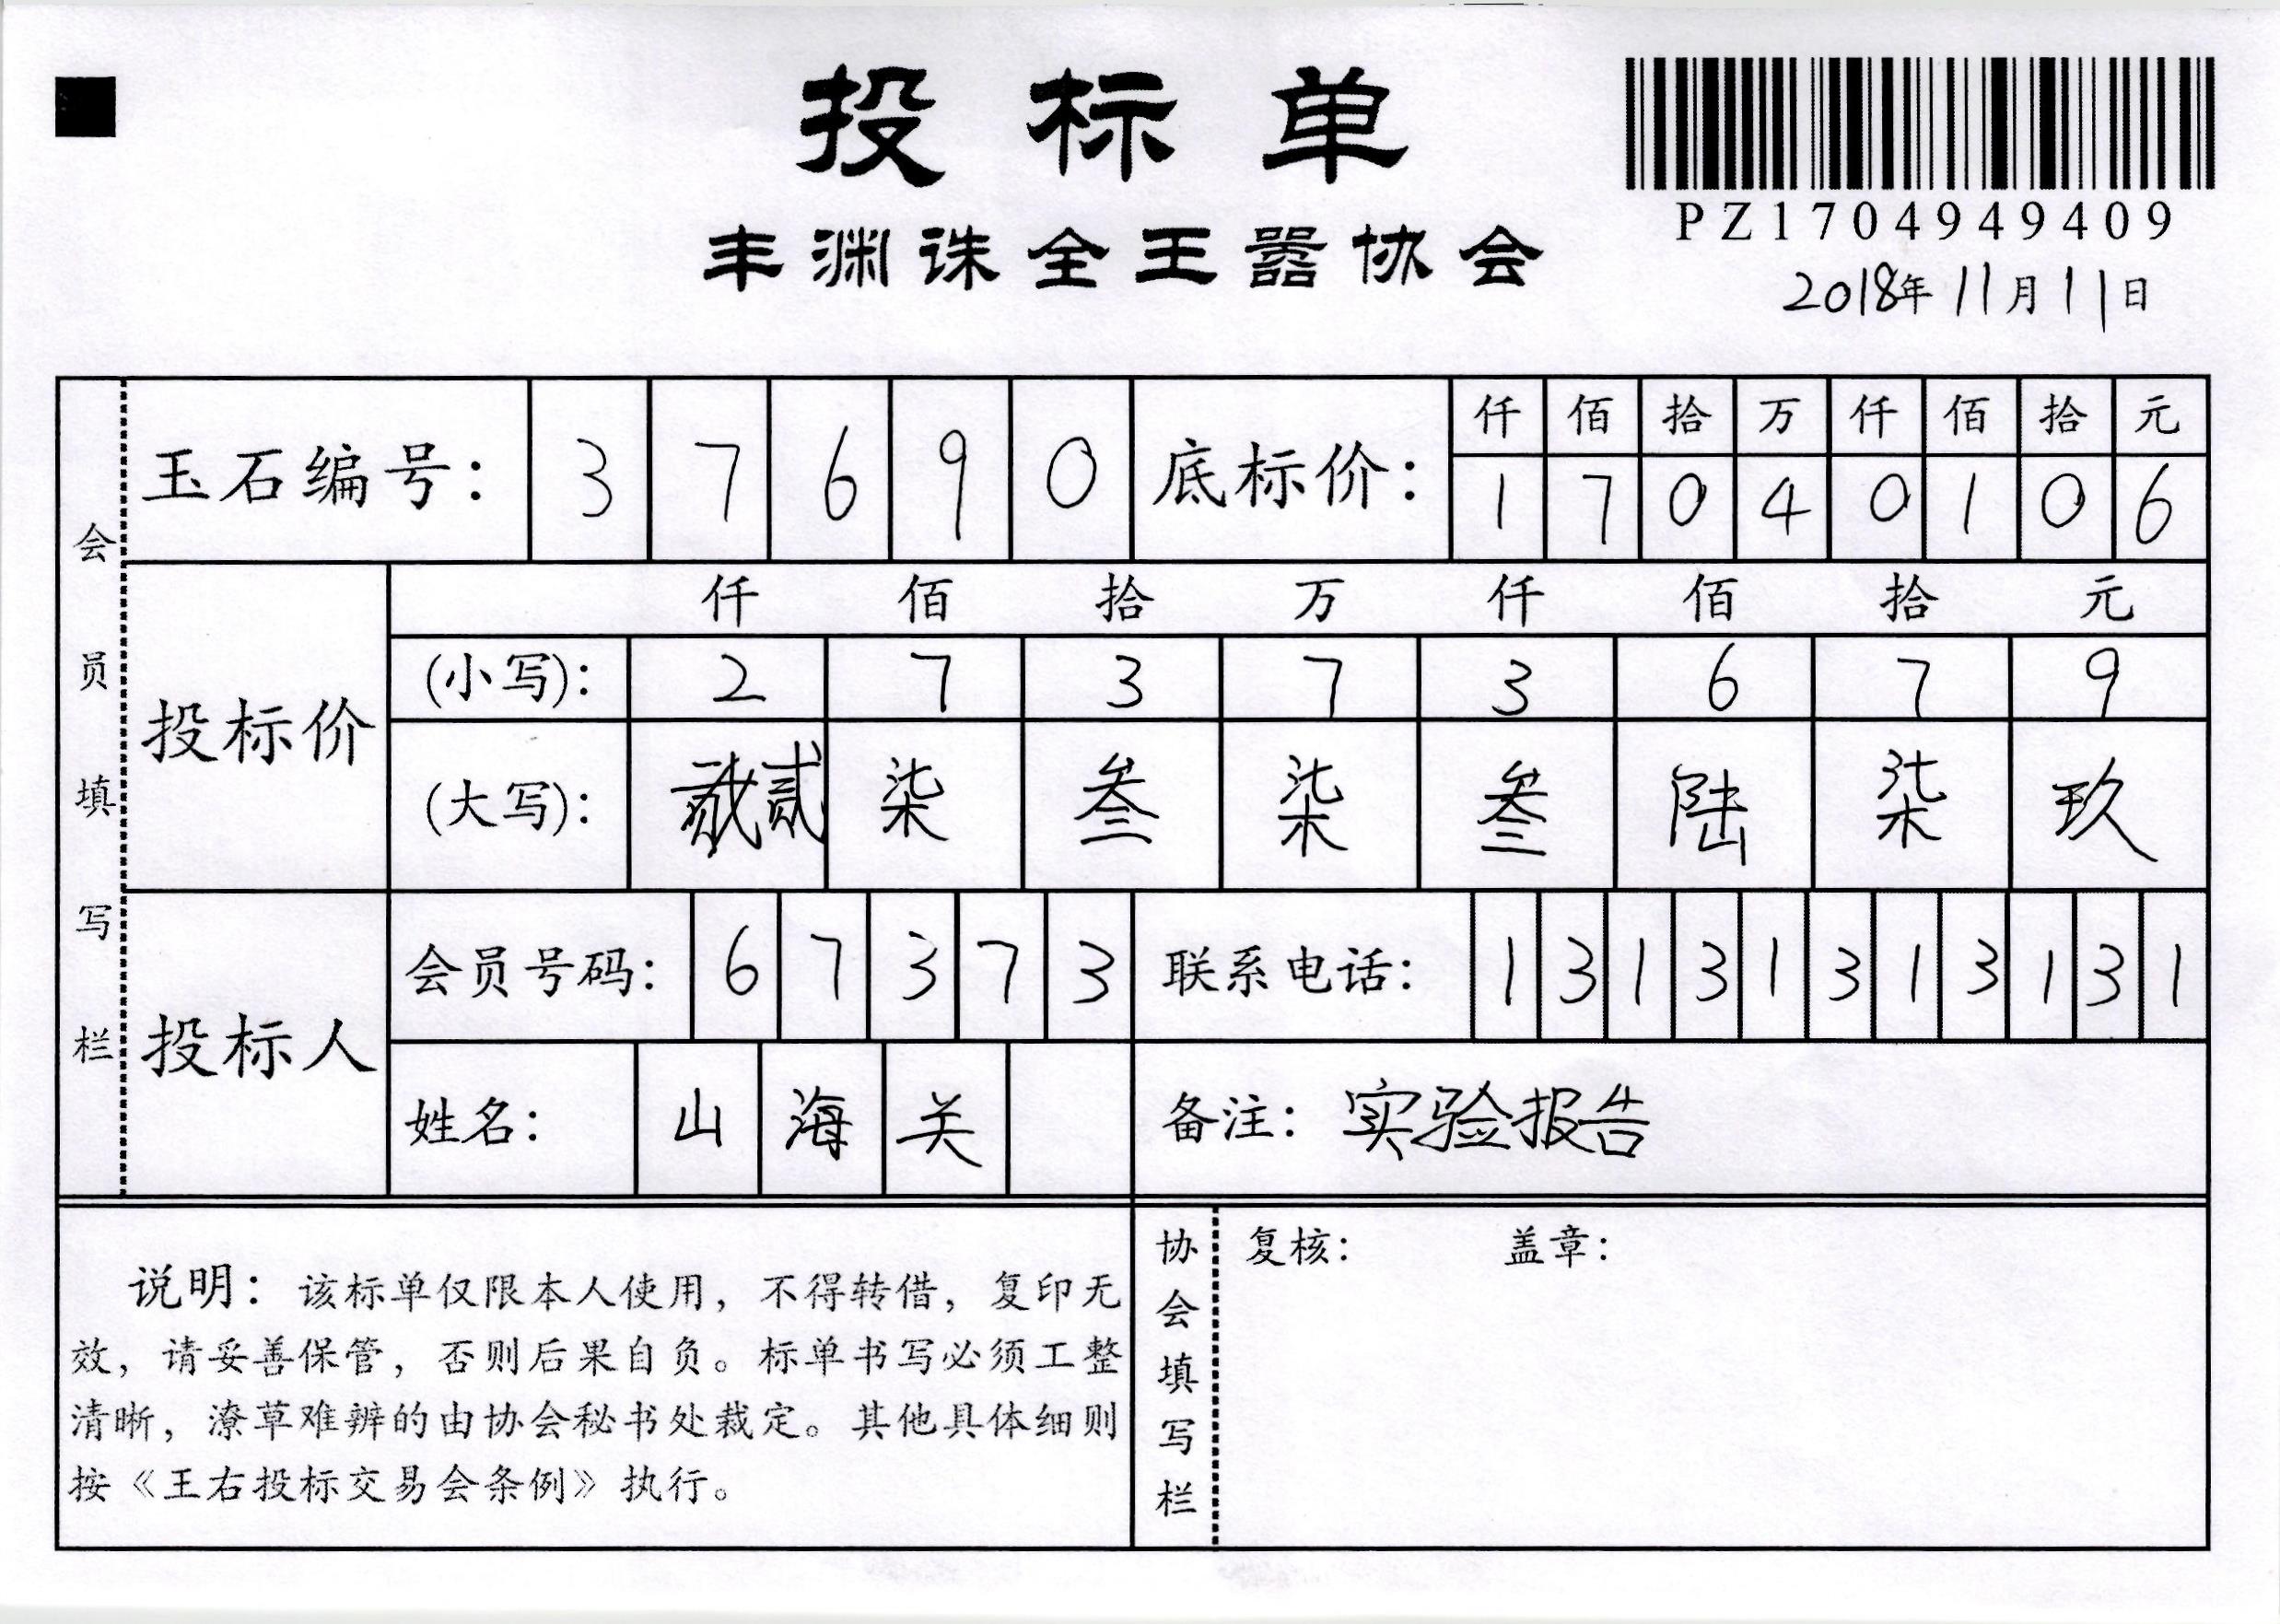 投标单
丰渊诛全王嚣协会
PZ1704949409
2018年11月11日
玉石编号： 3 7 6 9 0 底标价： 仟 佰 拾 万 仟 佰 拾 元
1 7 0 4 0 1 0 6
仟 佰 拾 万 仟 佰 拾 元
投标价 (小写)： 2 7 3 7 3 6 7 9
(大写)： 贰 柒 叁 柒 叁 陆 柒 玖
投标人 会员号码： 6 7 3 7 3 联系电话： 1 3 1 3 1 3 1 3 1 3 1
姓名： 山 海 关 备注：实验报告
会员填写栏
说明：该标单仅限本人使用，不得转借，复印无
效，请妥善保管，否则后果自负。标单书写必须工整
清晰，潦草难辨的由协会秘书处裁定。其他具体细则
按《王右投标交易会条例》执行。
协会填写栏
复核： 盖章：